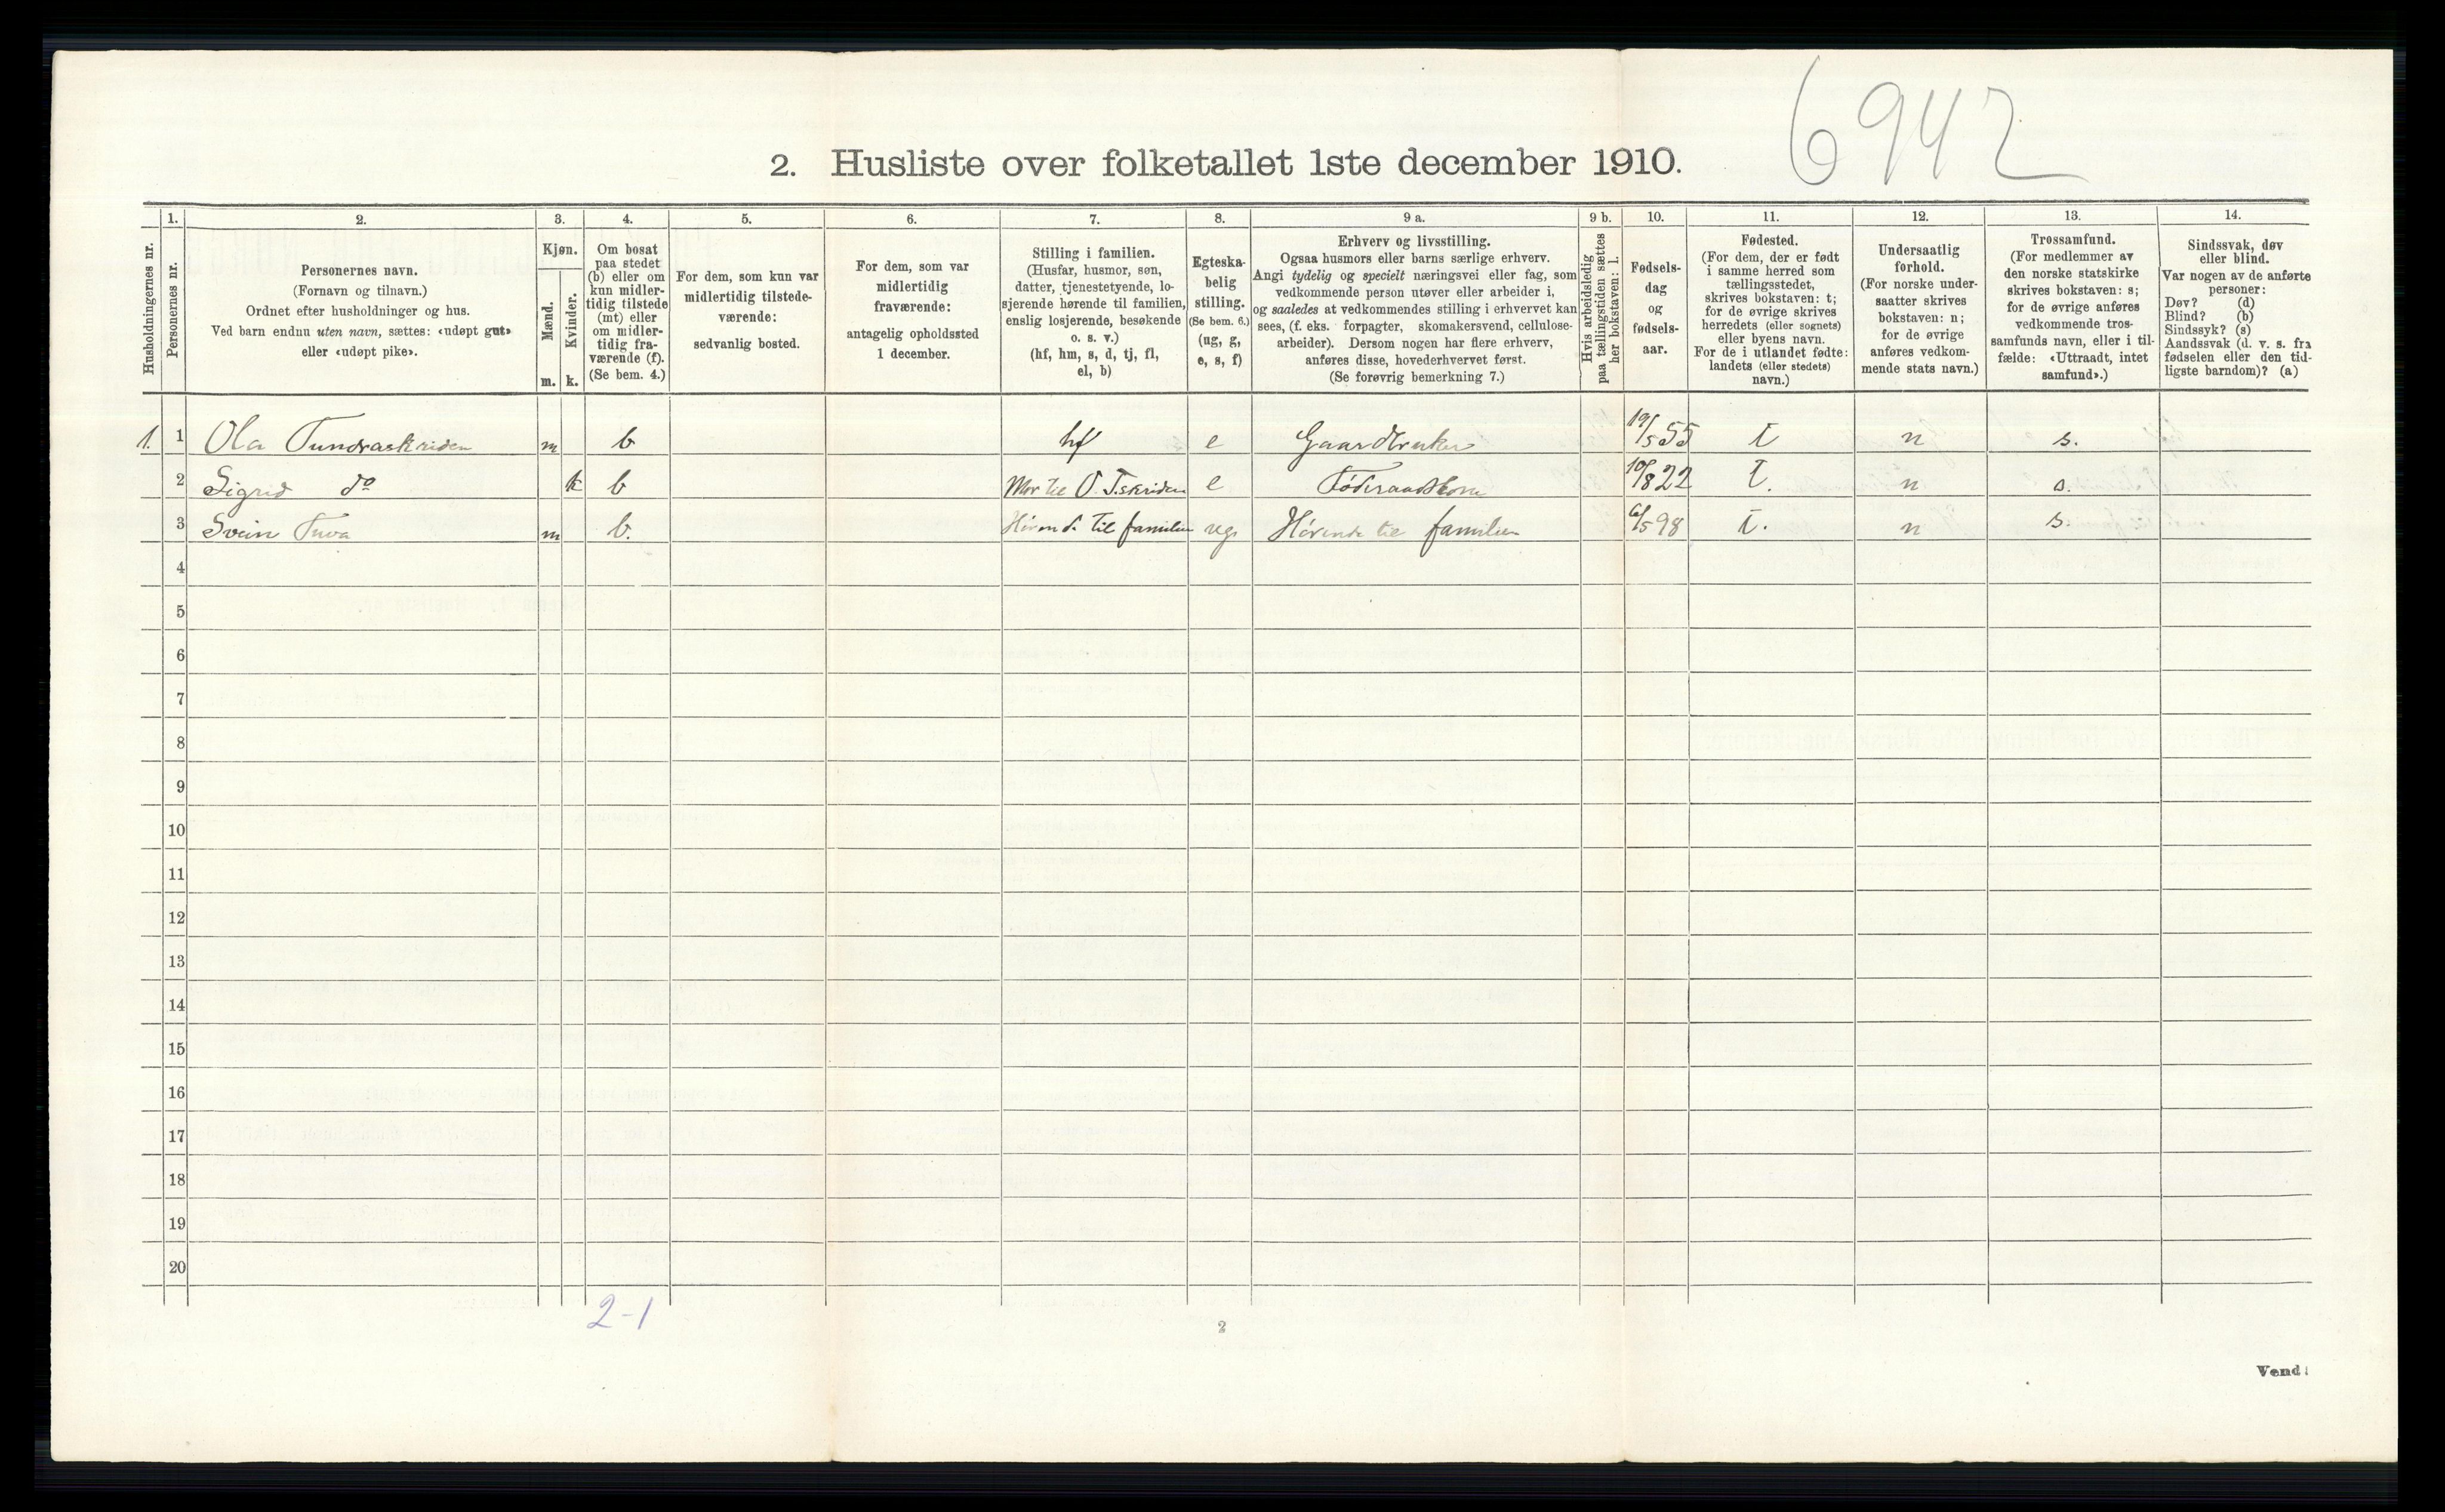 6942
2. Husliste over folketallet 1ste december 1910.
Husholdningernes nr.
1.
Personernes nr.
2.
Personernes navn.
(Fornavn og tilnavn.)
Ordnet efter husholdninger og hus.
Ved barn endnu uten navn, sættes: «udøpt gut»
eller «udøpt pike».
3.
Kjøn.
Mænd.
m.
Kvinder.
k.
4.
Om bosat
paa stedet
(b) eller om
kun midler-
tidig tilstede
(mt) eller
om midler-
tidig fra-
værende (f).
(Se bem. 4.)
5.
For dem, som kun var
midlertidig tilstede-
værende:
sedvanlig bosted.
6.
For dem, som var
midlertidig
fraværende:
antagelig opholdssted
1 december.
7.
Stilling i familien.
(Husfar, husmor, søn,
datter, tjenestetyende, lo-
sjerende hørende til familien,
enslig losjerende, besøkende
o. s. v.)
(hf, hm, s, d, tj, fl,
el, b)
8.
Egteska-
belig
stilling.
(Se bem. 6.)
(ug, g,
e, s, f)
9 a.
Erhverv og livsstilling.
Ogsaa husmors eller barns særlige erhverv.
Angi tydelig og specielt næringsvei eller fag, som
vedkommende person utøver eller arbeider i,
og saaledes at vedkommendes stilling i erhvervet kan
sees, (f. eks. forpagter, skomakersvend, cellulose-
arbeider). Dersom nogen har flere erhverv,
anføres disse, hovederhvervet først.
(Se forøvrig bemerkning 7.)
9 b.
Hvis arbeidsledig
paa tællingstiden sættes
her bokstaven: l.
10.
Fødsels-
dag
og
fødsels-
aar.
11.
Fødested.
(For dem, der er født
i samme herred som
tællingsstedet,
skrives bokstaven: t;
for de øvrige skrives
herredets (eller sognets)
eller byens navn.
For de i utlandet fødte:
landets (eller stedets)
navn.)
12.
Undersaatlig
forhold.
(For norske under-
saatter skrives
bokstaven: n;
for de øvrige
anføres vedkom-
mende stats navn.)
13.
Trossamfund.
(For medlemmer av
den norske statskirke
skrives bokstaven: s;
for de øvrige anføres
vedkommende tros-
samfunds navn, eller i til-
fælde: «Uttraadt, intet
samfund».)
14.
Sindssvak, døv
eller blind.
Var nogen av de anførte
personer:
Døv? (d)
Blind? (b)
Sindssyk? (s)
Aandssvak (d. v. s. fra
fødselen eller den tid-
ligste barndom)? (a)
1. 1 Ola Tundraskriden m b hf e Gaardbruker 19/5 55 t n s.
2 Sigrid do k b Mor til O. T.skriden e Føderaadskone 10/8 22 t. n s.
3 Svein Tuva m b. Hørende til familien ug Hørende til familien 6/5 98 t. n s.
4
5
6
7
8
9
10
11
12
13
14
15
16
17
18
19
20
2-1
2
Vend!